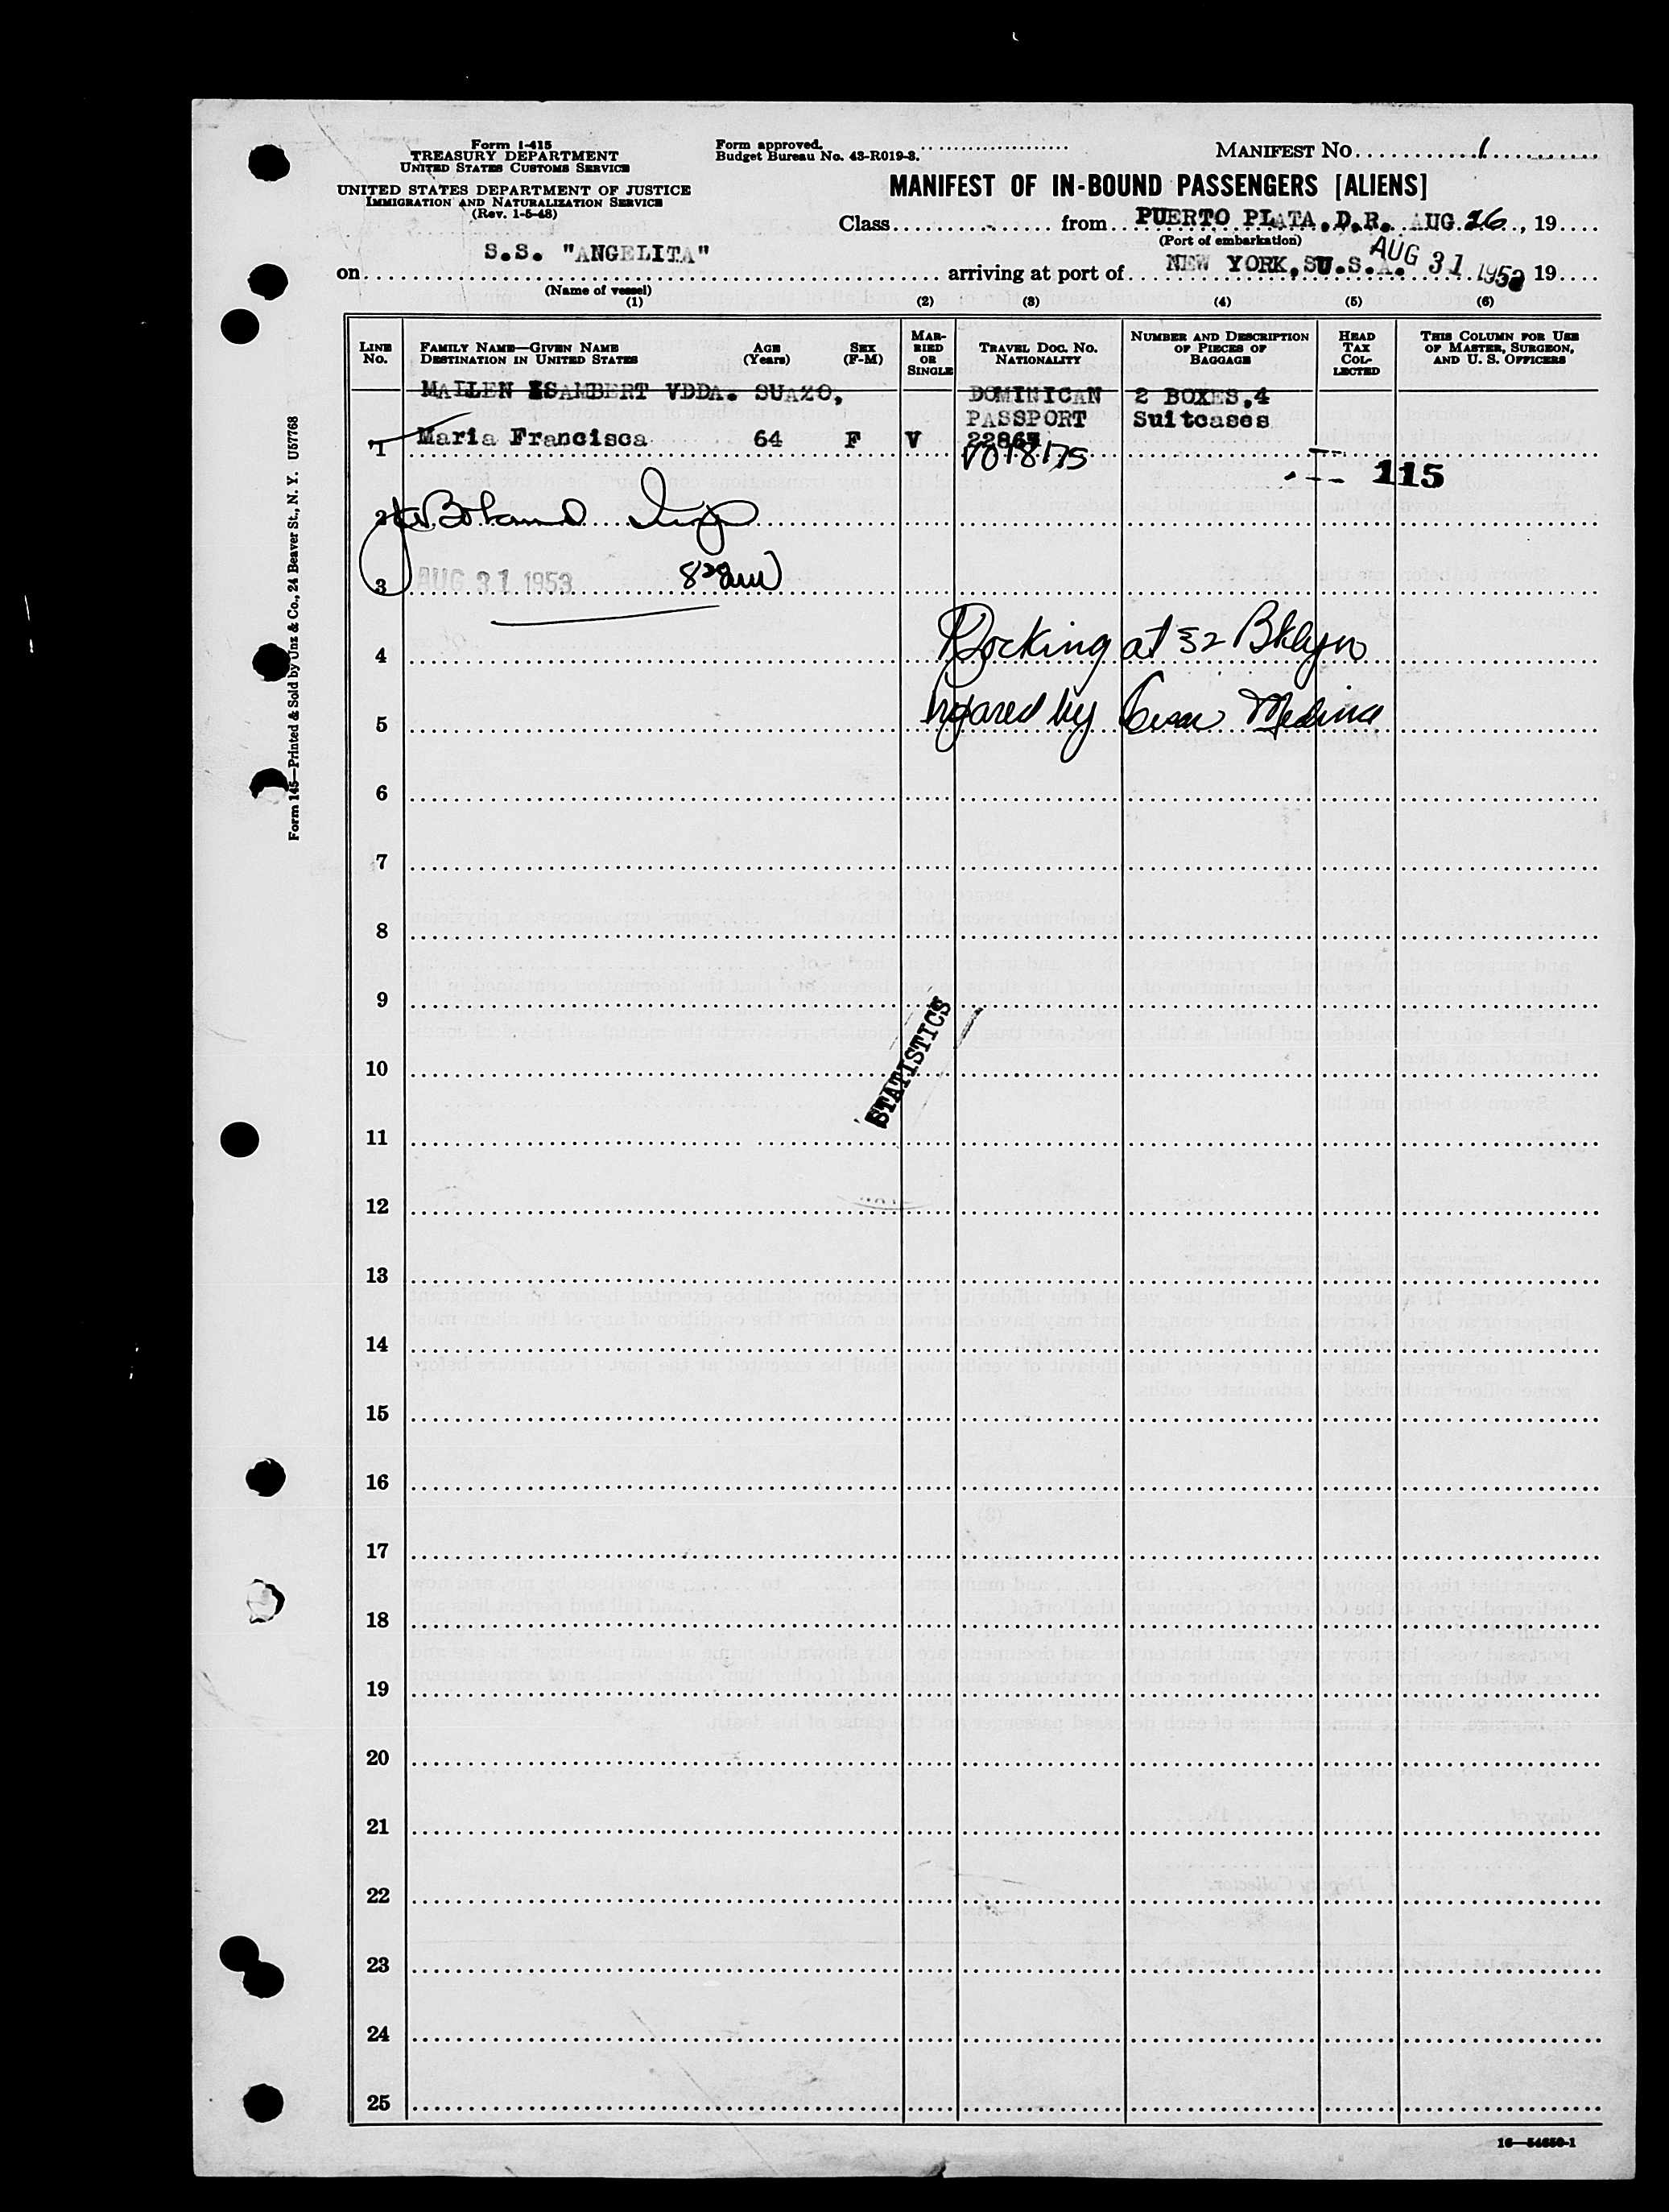 Form I-415
TREASURY DEPARTMENT
UNITED STATES CUSTOMS SERVICE
UNITED STATES DEPARTMENT OF JUSTICE
IMMIGRATION AND NATURALIZATION SERVICE
(Rev. 1-5-48)
Form approved.
Budget Bureau No. 43-R019-3.
MANIFEST NO. 1
MANIFEST OF IN-BOUND PASSENGERS [ALIENS]
Class from PUERTO PLATA, D.R. AUG. 26, 19
(Port of embarkation)
on S.S. "ANGELITA" arriving at port of NEW YORK, U.S.A. AUG 31 1953 19
(Name of vessel)
(1) (2) (3) (4) (5) (6)
LINE No. FAMILY NAME—GIVEN NAME DESTINATION IN UNITED STATES AGE (Years) SEX (F-M) MARRIED OR SINGLE TRAVEL DOC. NO. NATIONALITY NUMBER AND DESCRIPTION OF PIECES OF BAGGAGE HEAD TAX COLLECTED THIS COLUMN FOR USE OF MASTER, SURGEON, AND U. S. OFFICERS
MAILEN ISAMBERT VDDA. SUAZO, DOMINICAN 2 BOXES,4
PASSPORT Suitcases
1 Maria Francisca 64 F V 22867
V018175
115
2
3 AUG 31 1953
4 Docking at 32 Bklyn
5 by Medina
6
7
8
9
STATISTICS
10
11
12
13
14
15
16
17
18
19
20
21
22
23
24
25
16—54650-1
Form 145—Printed & Sold by Unz & Co., 24 Beaver St., N. Y. U57768